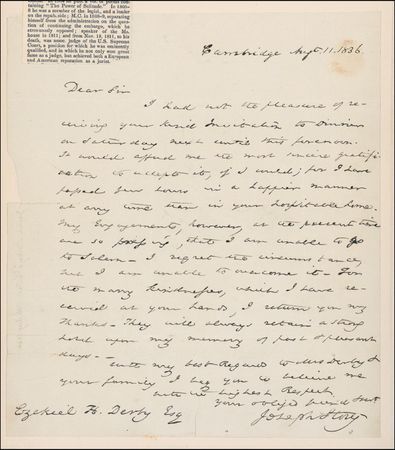 taining "The Power of Solitude." In 1805-
8 he was a member of the legisl., and a leader
on the repub. side; M.C. in 1808-9, separating
himself from the administration on the ques-
tion of continuing the embargo, which he
strenuously opposed; speaker of the Ms.
house in 1811; and from Nov. 18, 1811, to his
death, was assoc. judge of the U.S. Supreme
Court, a position for which he was eminently
qualified, and in which he not only won great
fame as a judge, but achieved both a European
and American reputation as a jurist.
Cambridge Augt. 11. 1836.
Dear Sir
I had not the pleasure of re-
ceiving your kind Invitation to Dinner
on Saturday next until this forenoon.
It would afford me the most sincere gratifi-
cation to accept it, if I could; for I have
passed few hours in a happier manner
at any time than in your hospitable home.
My Engagements, however, at the present time
are so pressing, that I am unable to go
to Salem — I regret the circumstance,
but I am unable to overcome it — For
the many kindnesses, which I have re-
ceived at your hands, I return you my
thanks — They will always retain a strong
hold upon my memory of past & pleasant
days —
with my best Regard to Mrs Derby &
your family I beg you to believe me
with the highest Respect
your obliged friend
Joseph Story
Ezekiel H. Derby Esq